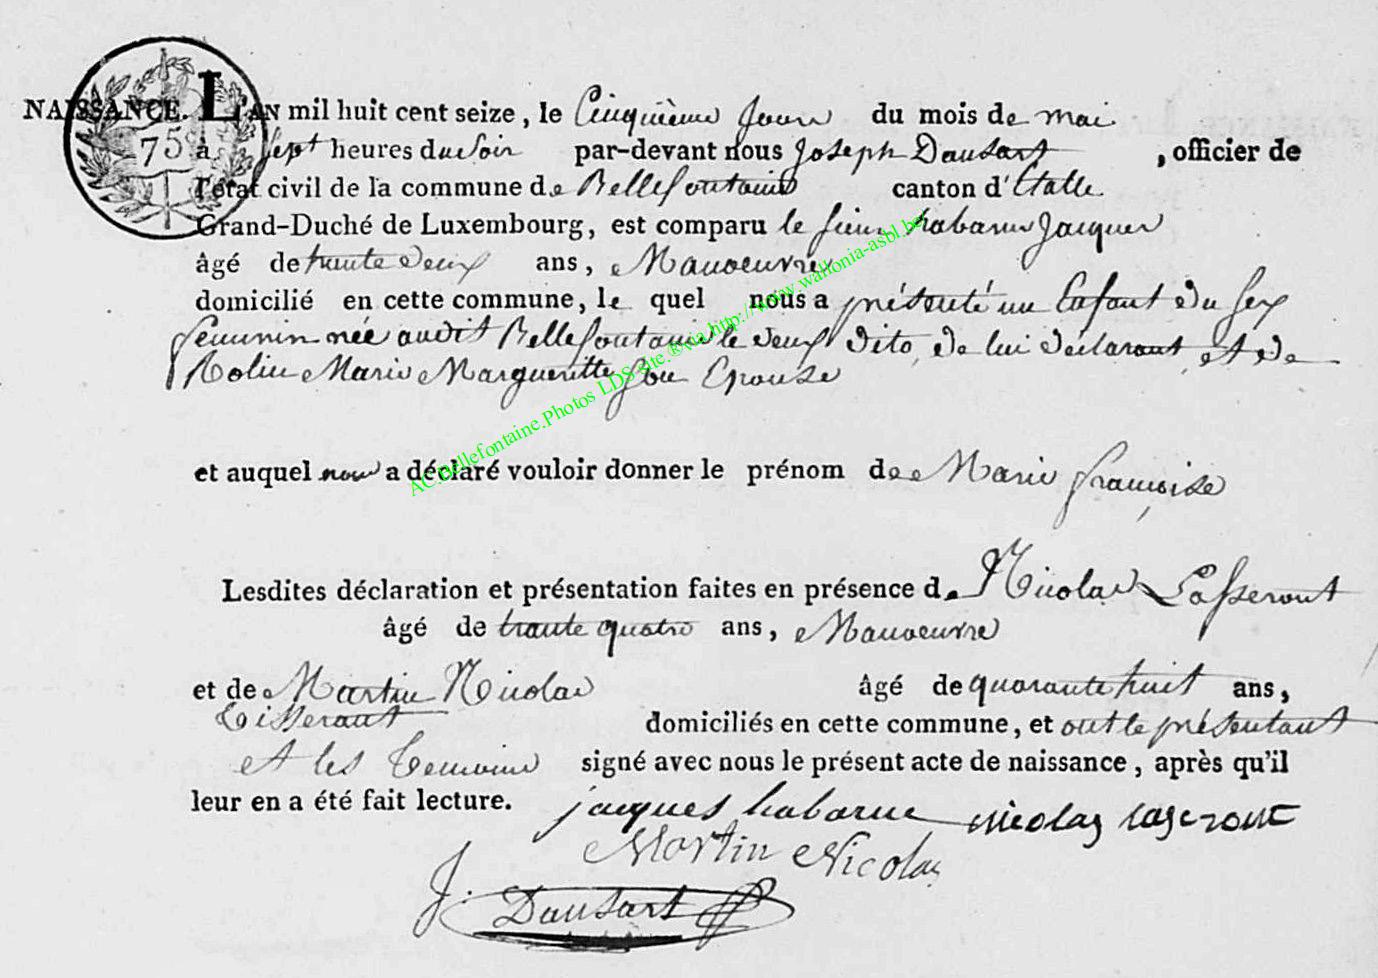 NAISSANCE. L'AN mil huit cent seize, le Cinquieme Jour du mois de mai
75 à sept heures du Soir par-devant nous Joseph Dausart, officier de
l'état civil de la commune de Bellefontaine canton d'Etalle
Grand-Duché de Luxembourg, est comparu le sieur habarue Jacques
âgé de trante deux ans, Manoeuvre
domicilié en cette commune, le quel nous a présenté un Enfant du sex
feminin née audit Bellefontaine le deux dito, de lui déclarant et de
Rolin Marie Margueritte son Epouse
et auquel nous a déclaré vouloir donner le prénom de Marie françoise
Lesdites déclaration et présentation faites en présence de Nicolas Lasseront
âgé de trante quatre ans, Manoeuvre
et de Martin Nicolas âgé de quarante huit ans,
Tisserant domiciliés en cette commune, et ont le présentant
et les Temoins signé avec nous le présent acte de naissance, après qu'il
leur en a été fait lecture. jacques habarue nicolas laseront
Martin Nicolas
J. Dausart
AC.Bellefontaine.Photos LDS site.®via.http://www.wallonia-asbl.be/